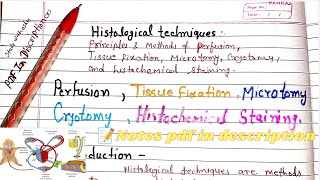 PANKAJ
Page No.
Date
Histological techniques:-
Principles & Methods of perfusion,
Tissue fixation, Microtomy, Cryotomy,
and histochemical staining.
PDF In Description
Perfusion, Tissue Fixation, Microtomy
Cryotomy, Histochemical Staining.
Notes pdf in description
duction -
Histological techniques are methods